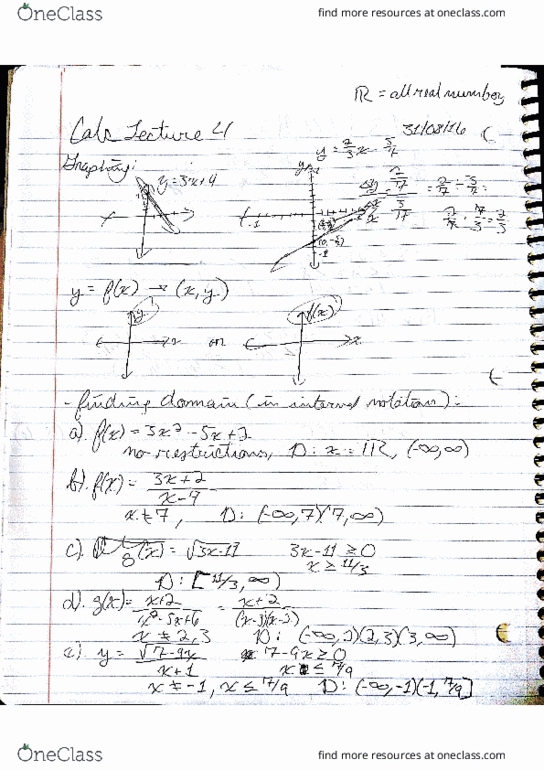 OneClass
find more resources at oneclass.com
ℝ = all real numbers
Calc Lecture 4
31/08/16
Graphing:
y = 3x+4
y = 2/3x - 5/7
y = f(x) → (x, y)
y
x
or
f(x)
x
- finding domain (in interval notation):
a). f(x) = 3x² - 5x + 2
no restrictions, D: x = ℝ, (-∞, ∞)
b). f(x) = 3x+2 / x-9
x ≠ 7, D: (-∞, 7)(7, ∞)
c). g(x) = √3x-11 3x-11 ≥ 0
x ≥ 11/3
D: [11/3, ∞)
d). g(x) = x+2 / x²-5x+6 = x+2 / (x-3)(x-2)
x ≠ 2, 3 D: (-∞, 2)(2, 3)(3, ∞)
e). y = √7-9x / x+1 7-9x ≥ 0
x ≤ 7/9
x ≠ -1, x ≤ 7/9 D: (-∞, -1)(-1, 7/9]
OneClass
find more resources at oneclass.com